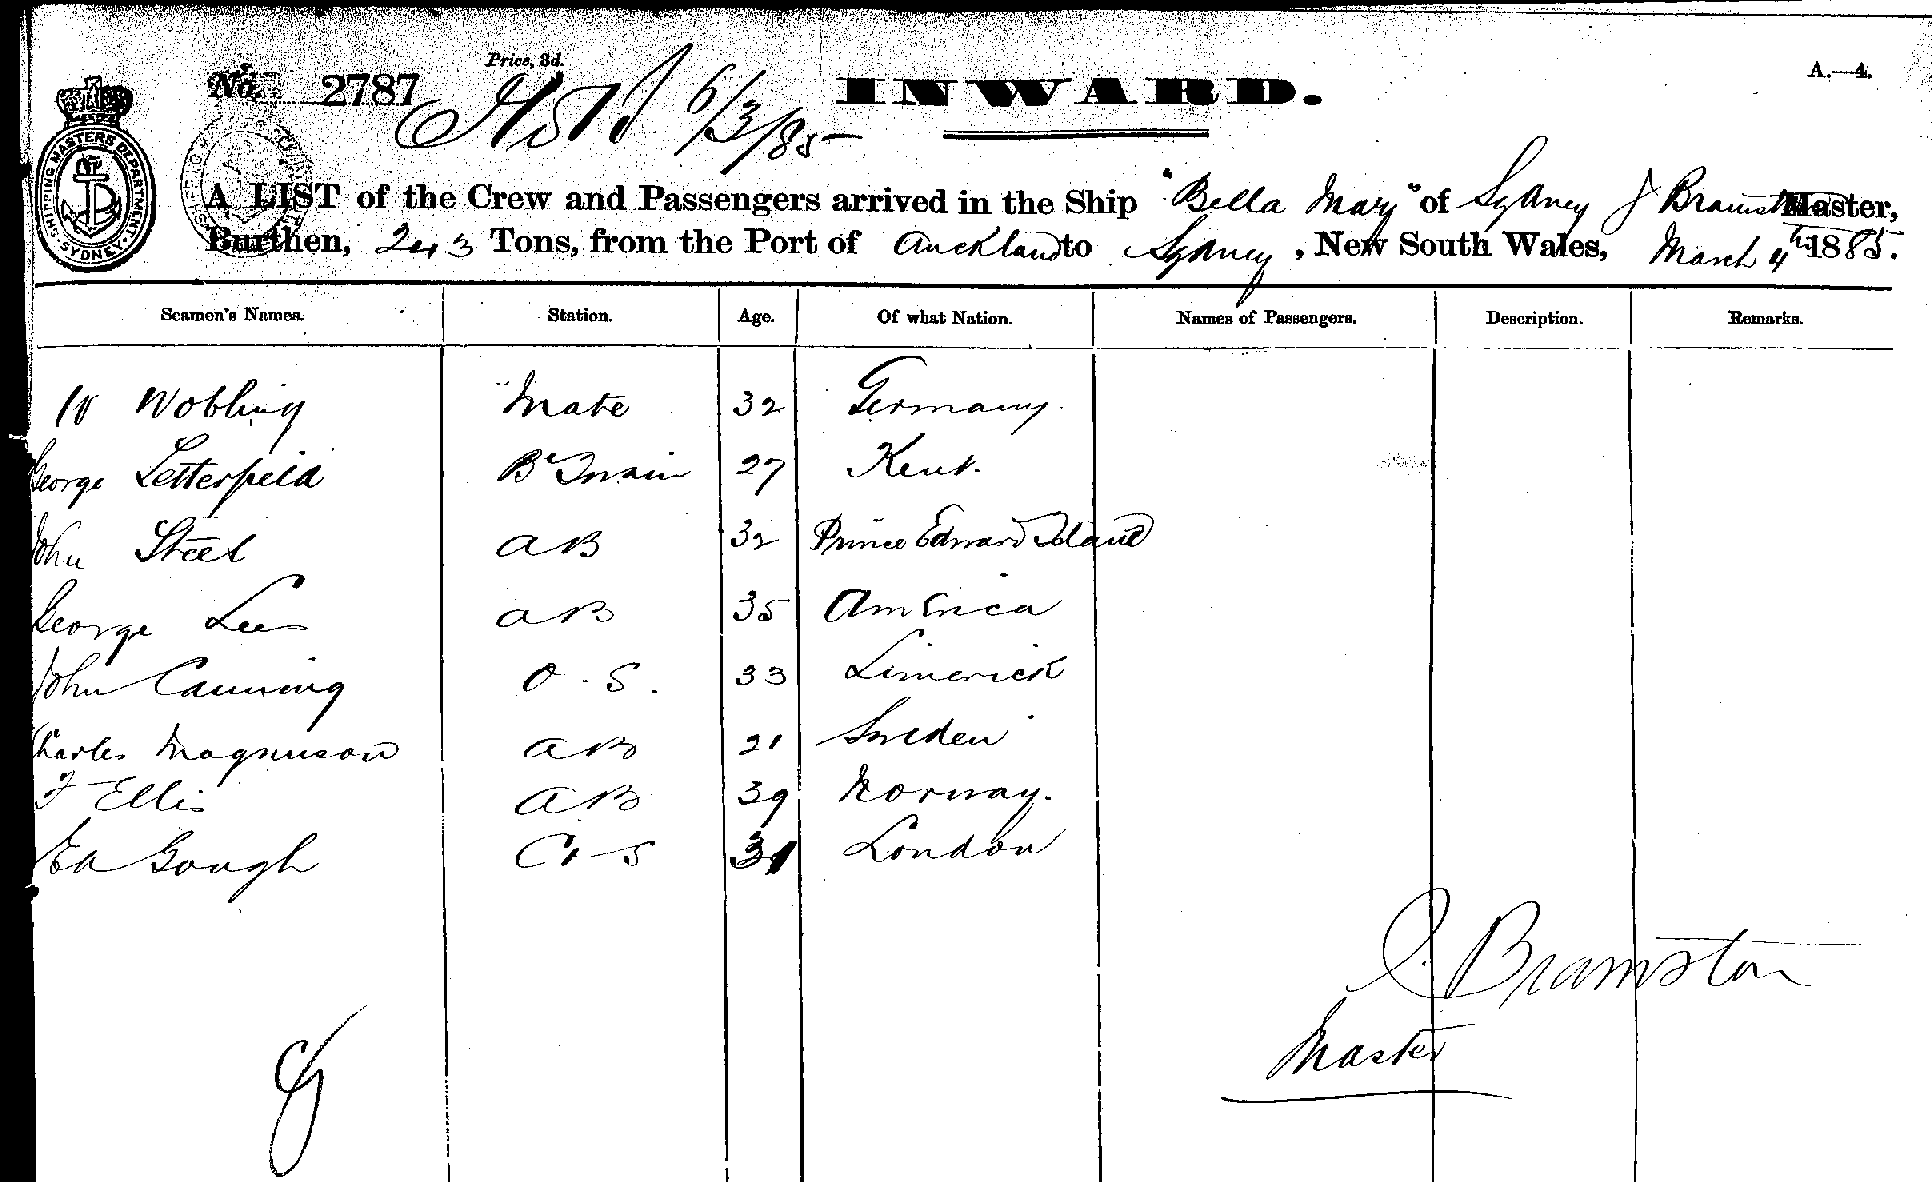 Price, 3d.
No. 2787 6/3/85 INWARD. A.—4.
SHIPPING MASTERS DEPARTMENT SYDNEY
A LIST of the Crew and Passengers arrived in the Ship "Bella Mary" of Sydney J Bramston Master,
Burthen, 243 Tons, from the Port of Auckland to Sydney, New South Wales, March 4th 1885.
Seamen's Names. Station. Age. Of what Nation. Names of Passengers. Description. Remarks.
W Wobling Mate 32 Germany.
George Letterfield 27 Kent.
John Steel AB 32 Prince Edward Island
George Lee AB 35 America
John Canning O.S. 33 Limerick
Charles Magnuson AB 21 Sweden
F Ellis AB 39 Norway.
Ed Gough 31 London
J. Bramston
Master